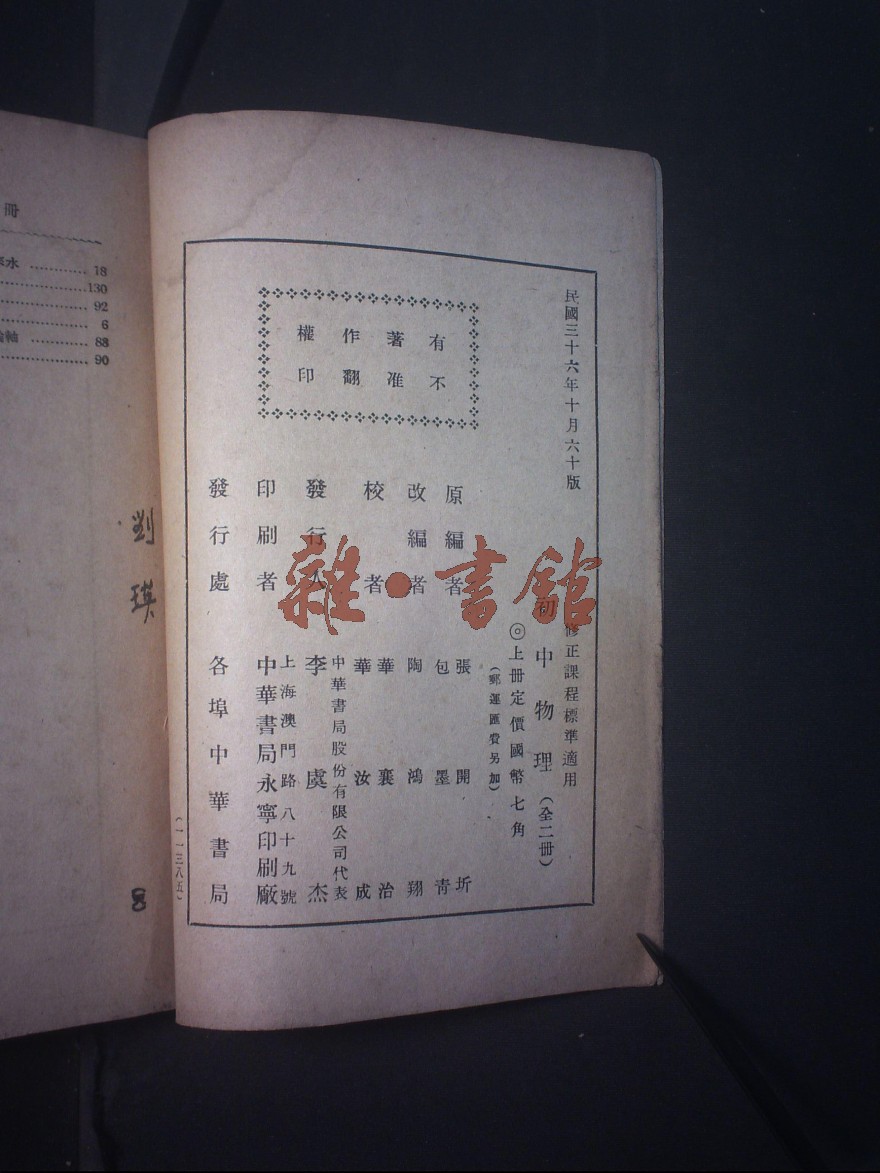 民國三十六年十月六十版
修正課程標準適用
初中物理（全二冊）
◎上册定價國幣七角
（郵運匯費另加）
有著作權
不准翻印
原編者 張開圻
包墨青
改編者 陶鴻翔
校者 華襄治
華汝成
發行人 李虞杰
中華書局股份有限公司代表
印刷者 上海澳門路八十九號
中華書局永寧印刷廠
發行處 各埠中華書局
（一一三八五）
雜·書館
冊
水 ………… 18
………… 130
………… 92
………… 6
軸 ………… 88
………… 90
劉瑛
8